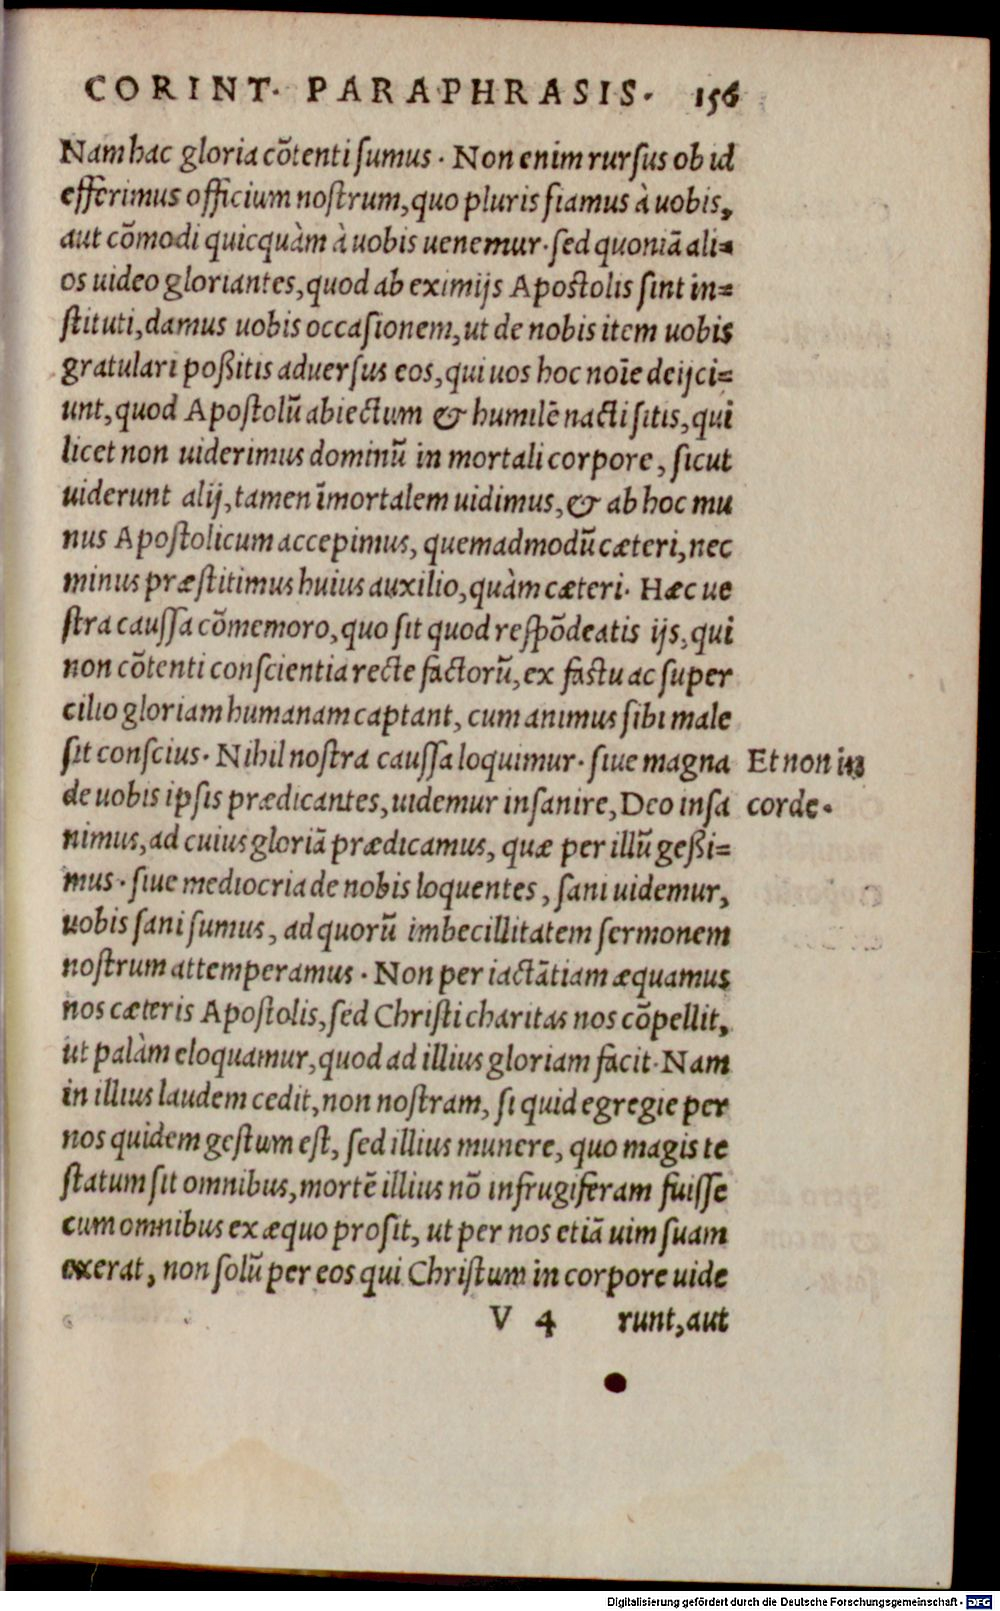 CORINT. PARAPHRASIS. 156
Nam hac gloria cõtenti sumus. Non enim rursus ob id
efferimus officium nostrum, quo pluris fiamus à uobis,
aut cõmodi quicquàm à uobis uenemur. sed quoniã ali=
os uideo gloriantes, quod ab eximijs Apostolis sint in=
stituti, damus uobis occasionem, ut de nobis item uobis
gratulari poßitis aduersus eos, qui uos hoc noĩe deijci=
unt, quod Apostolũ abiectum & humilẽ nacti sitis, qui
licet non uiderimus dominũ in mortali corpore, sicut
uiderunt alij, tamen ĩmortalem uidimus, & ab hoc mu
nus Apostolicum accepimus, quemadmodũ cæteri, nec
minus præstitimus huius auxilio, quàm cæteri. Hæc ue
stra caussa cõmemoro, quo sit quod respõdeatis ijs, qui
non cõtenti conscientia recte factorũ, ex fastu ac super
cilio gloriam humanam captant, cum animus sibi male
sit conscius. Nihil nostra caussa loquimur. siue magna
Et non in
de uobis ipsis prædicantes, uidemur insanire, Deo insa
corde.
nimus, ad cuius gloriã prædicamus, quæ per illũ geßi=
mus. siue mediocria de nobis loquentes, sani uidemur,
uobis sani sumus, ad quorũ imbecillitatem sermonem
nostrum attemperamus. Non per iactãtiam æquamus
nos cæteris Apostolis, sed Christi charitas nos cõpellit,
ut palàm eloquamur, quod ad illius gloriam facit. Nam
in illius laudem cedit, non nostram, si quid egregie per
nos quidem gestum est, sed illius munere, quo magis te
statum sit omnibus, mortẽ illius nõ infrugiferam fuisse
cum omnibus ex æquo prosit, ut per nos etiã uim suam
exerat, non solũ per eos qui Christum in corpore uide
V 4 runt, aut
Digitalisierung gefördert durch die Deutsche Forschungsgemeinschaft - DFG